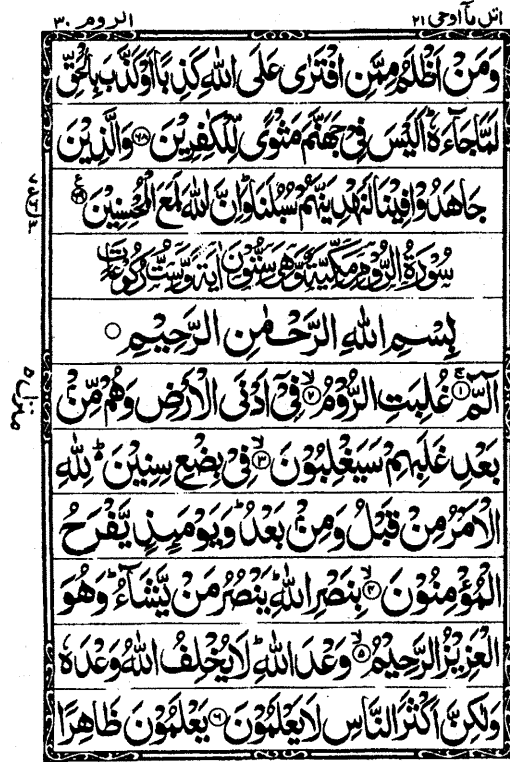 اتل مآ اوحی ۲۱ الروم ۳۰
وَمَنْ اَظْلَمُ مِمَّنِ افْتَرٰى عَلَى اللّٰهِ كَذِبًا اَوْ كَذَّبَ بِالْحَقِّ
لَمَّا جَآءَهٗ ؕ اَلَيْسَ فِيْ جَهَنَّمَ مَثْوًى لِّلْكٰفِرِيْنَ ۶۸ وَالَّذِيْنَ
جَاهَدُوْا فِيْنَا لَنَهْدِيَنَّهُمْ سُبُلَنَا ؕ وَاِنَّ اللّٰهَ لَمَعَ الْمُحْسِنِيْنَ ۶۹ ع
سُوْرَةُ الرُّوْمِ مَكِّيَّةٌ وَّهِيَ سِتُّوْنَ اٰيَةً وَّسِتُّ رُكُوْعَاتٍ
بِسْمِ اللّٰهِ الرَّحْمٰنِ الرَّحِيْمِ
الٓمّٓ ۱ غُلِبَتِ الرُّوْمُ ۲ فِيْٓ اَدْنَى الْاَرْضِ وَهُمْ مِّنْۢ
بَعْدِ غَلَبِهِمْ سَيَغْلِبُوْنَ ۳ فِيْ بِضْعِ سِنِيْنَ ؕ لِلّٰهِ
الْاَمْرُ مِنْ قَبْلُ وَمِنْۢ بَعْدُ ؕ وَيَوْمَئِذٍ يَّفْرَحُ
الْمُؤْمِنُوْنَ ۴ بِنَصْرِ اللّٰهِ ؕ يَنْصُرُ مَنْ يَّشَآءُ ؕ وَهُوَ
الْعَزِيْزُ الرَّحِيْمُ ۵ وَعْدَ اللّٰهِ ؕ لَا يُخْلِفُ اللّٰهُ وَعْدَهٗ
وَلٰكِنَّ اَكْثَرَ النَّاسِ لَا يَعْلَمُوْنَ ۶ يَعْلَمُوْنَ ظَاهِرًا